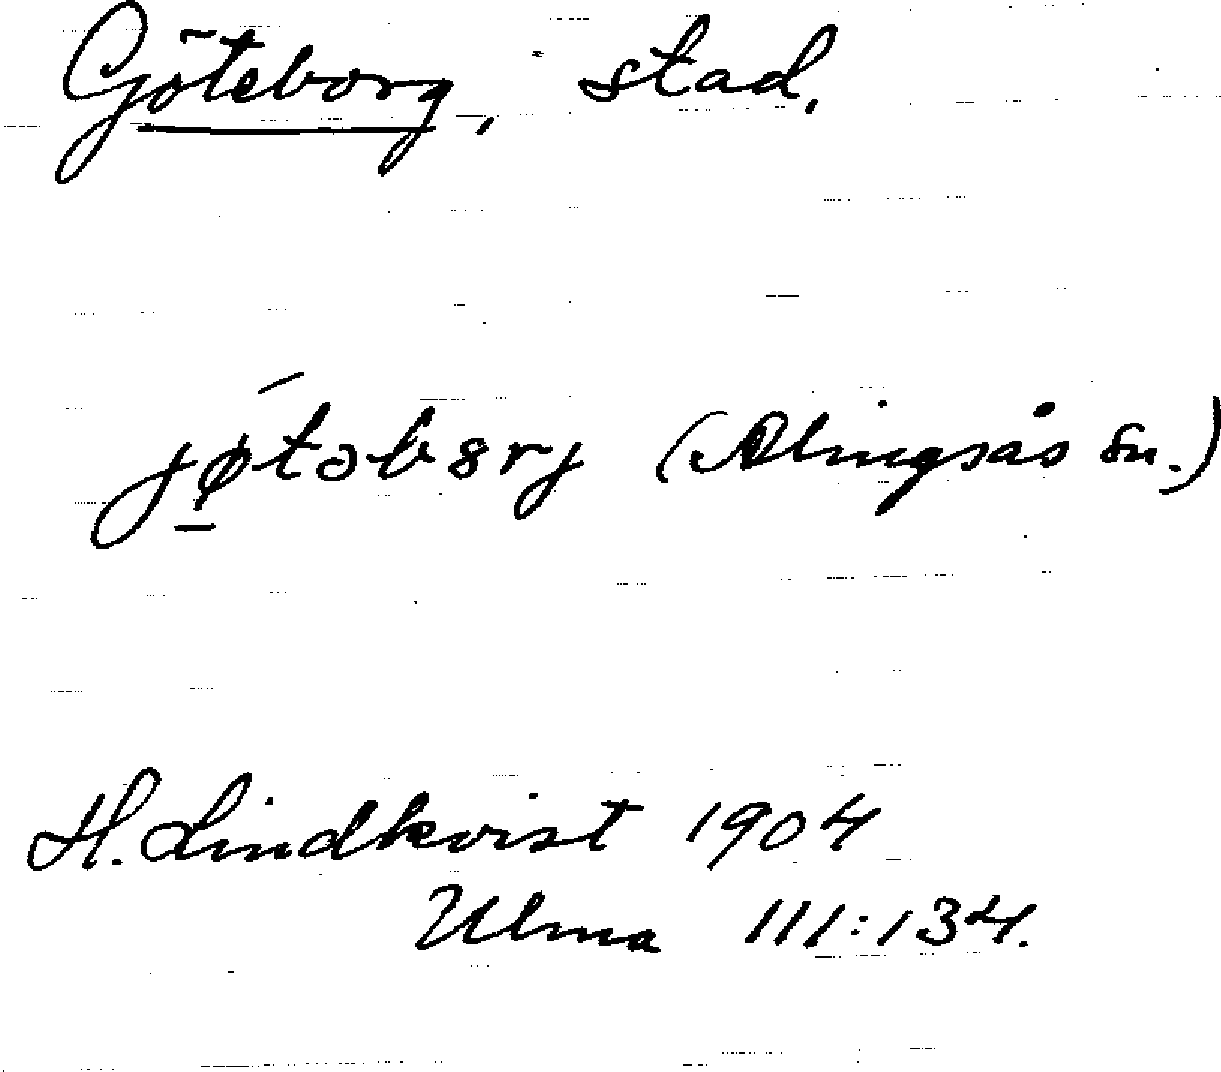 Göteborg, stad,
jǿ̱təbȣrj (Alingsås sn.)
H. Lindkvist 1904
Ulma 111:134.